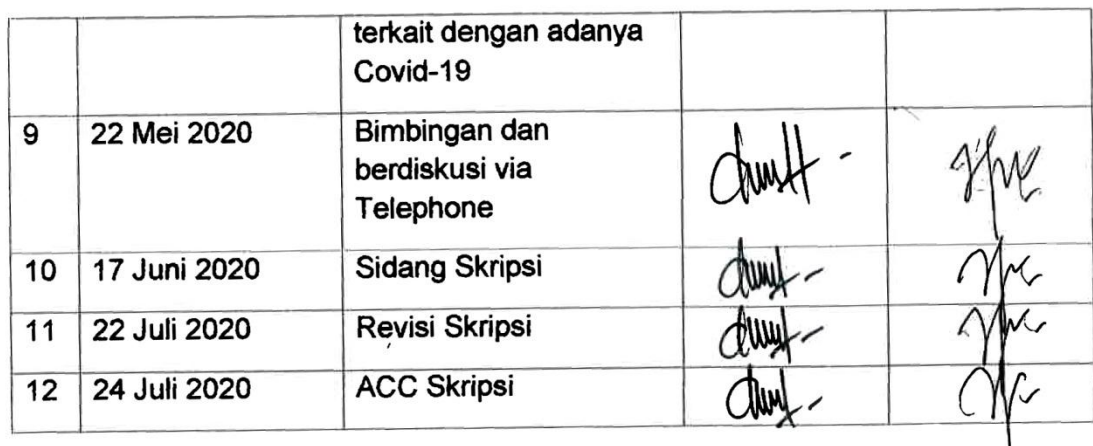 terkait dengan adanya
Covid-19
9 22 Mei 2020 Bimbingan dan
berdiskusi via
Telephone
10 17 Juni 2020 Sidang Skripsi
11 22 Juli 2020 Revisi Skripsi
12 24 Juli 2020 ACC Skripsi